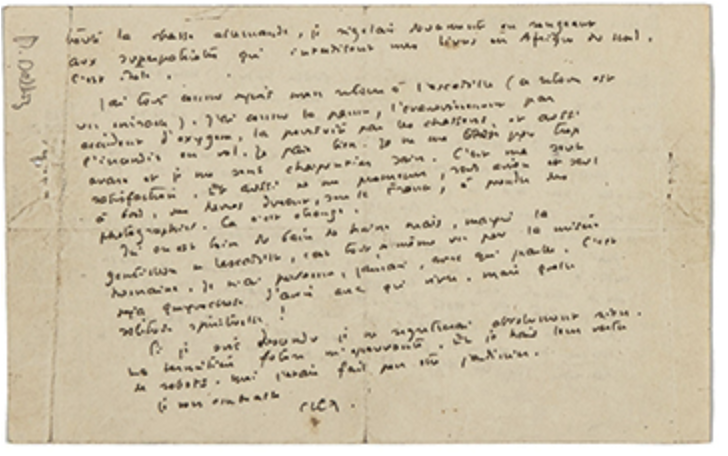 toute la chasse allemande, je rigolais doucement en songeant
aux superpatriotes qui interdisent mes livres en Afrique du Nord.
C'est drôle.
J'ai tout connu depuis mon retour à l'escadrille (ce retour est
un miracle). J'ai connu la panne, l'évanouissement par
accident d'oxygène, la poursuite par les chasseurs, et aussi
l'incendie en vol. Je paie bien. Je ne me crois pas trop
avare et je me sens charpentier sain. C'est ma seule
satisfaction. Et aussi de me promener, seul avion et seul
à bord, des heures durant, sur la France, à prendre des
photographies. Ça c'est étrange.
Ici on est loin du bain de haine mais, malgré la
gentillesse de l'escadrille, c'est tout de même un peu la misère
humaine. Je n'ai personne, jamais, avec qui parler. C'est
déjà quelque chose d'avoir avec qui vivre. Mais quelle
solitude spirituelle !
Si je suis descendu je ne regretterai absolument rien.
La termitière future m'épouvante. Et je hais leur vertu
de robots. Moi j'étais fait pour être jardinier.
Je vous embrasse